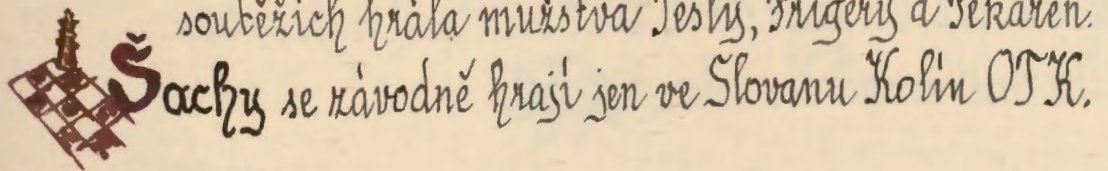 soutěžích hrála mužstva Tesly, Frigery a Pekáren.
Šachy se závodně hrají jen ve Slovanu Kolín OTK.